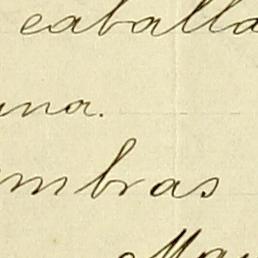 caballa
una.
mbras
Ma